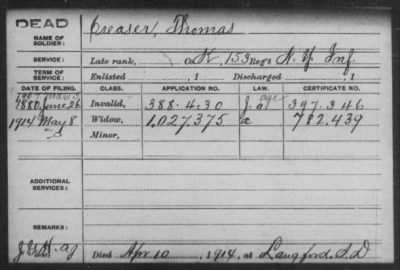 DEAD
NAME OF SOLDIER:
Creaser, Thomas
SERVICE:
Late rank, Co. K, 153 Reg't N.Y. Inf.
TERM OF SERVICE:
Enlisted , 1 Discharged , 1
DATE OF FILING. CLASS. APPLICATION NO. LAW. CERTIFICATE NO.
1907 Mar. age
1880 June 26 Invalid, 388.430 397.346
1914 May 8 Widow, 1,027.375 782.439
Minor,
ADDITIONAL SERVICES:
REMARKS:
Died Apr. 10, 1914, at Langford, S.D